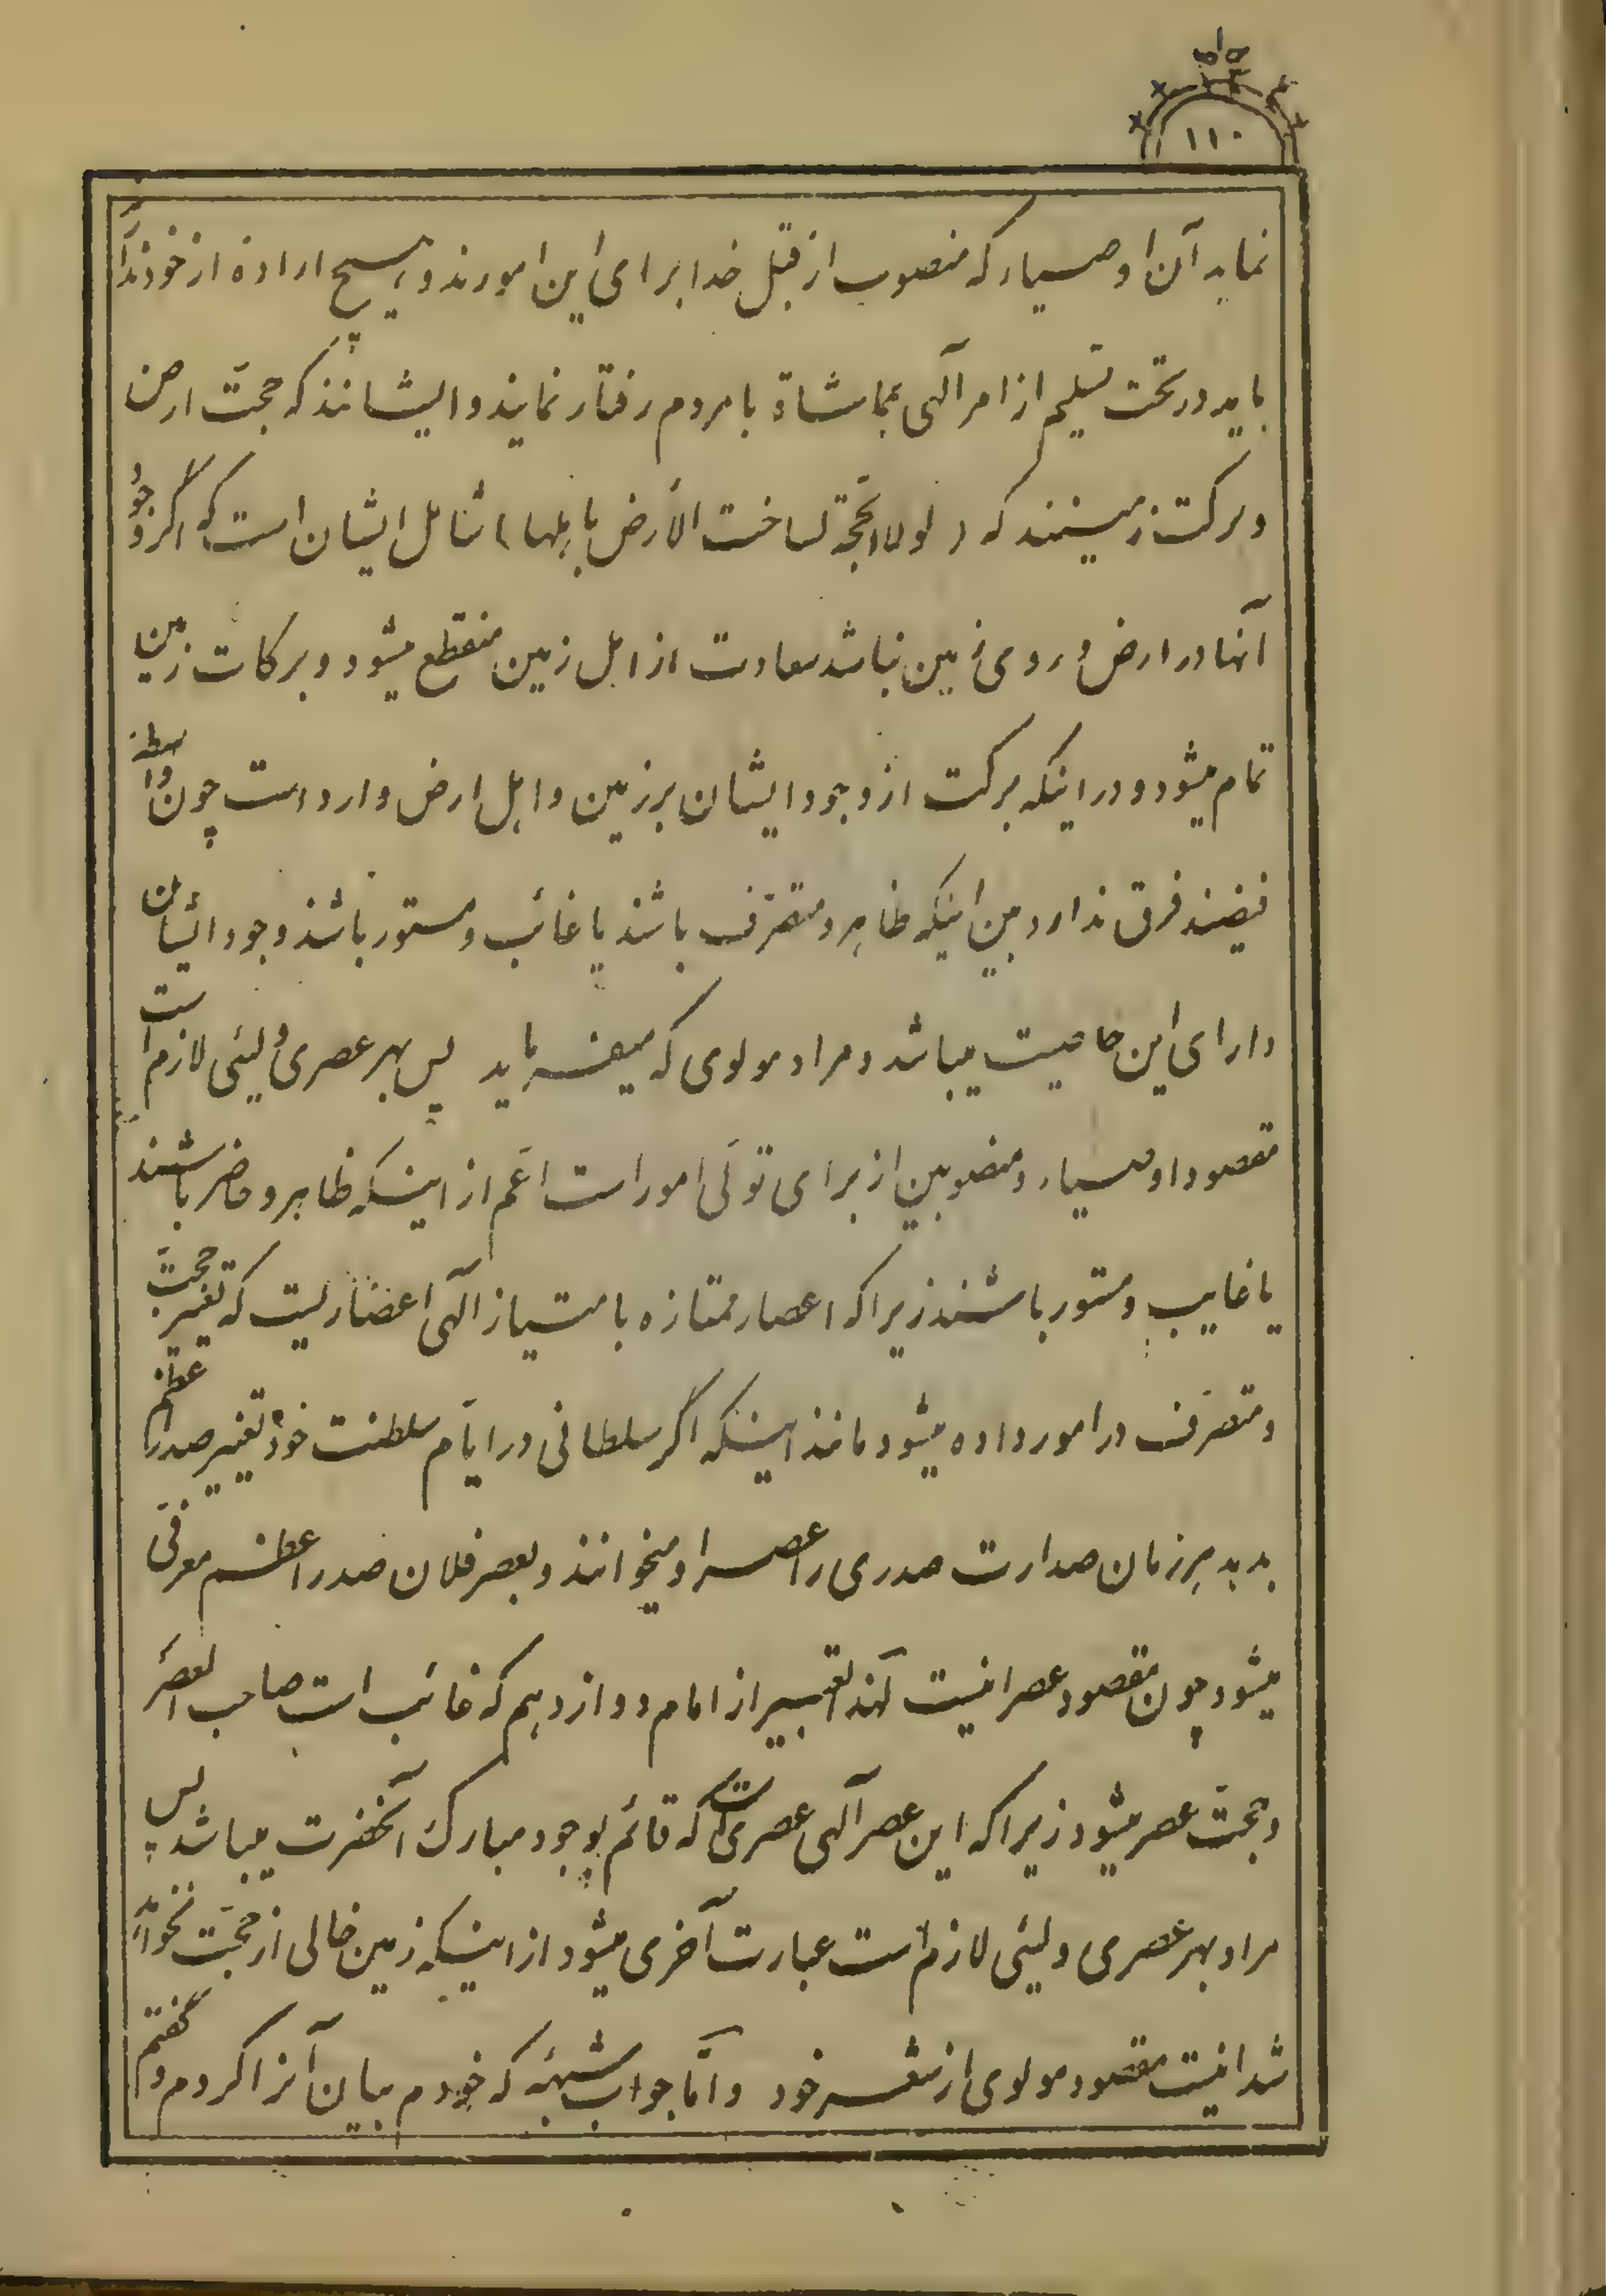 ۱۱۰
نماید آن اوصیاء که منصوب از قبل خدا برای این امورند و هیچ اراده از خود ندارند
باید در تحت تسلیم از امر آلهی بمماشاة با مردم رفتار نمایند و ایشانند که حجت ارض
و برکت زمینند که (لولا الحجة لساخت الأرض باهلها) شامل ایشان است که اگر وجود
آنها در ارض و روی زمین نباشد سعادت از اهل زمین منقطع میشود و برکات زمین
تمام میشود و در اینکه برکت از وجود ایشان بر زمین و اهل ارض وارد است چون واسطه
فیضند فرق ندارد بین اینکه ظاهر و متصرف باشند یا غائب و مستور باشند وجود ایشان
دارای این خاصیت میباشد و مراد مولوی که میفرماید پس بهر عصری ولیئی لازم است
مقصود اوصیاء و منصوبین از برای تولی امور است اعم از اینکه ظاهر و حاضر باشند
یا غایب و مستور باشند زیرا که اعصار ممتازه بامتیاز آلهی اعصاریست که تغییر حجت
و متصرف در امور داده میشود مانند اینکه اگر سلطانی در ایام سلطنت خود تغییر صدر اعظم
بدهد هر زمان صدارت صدری را عصر او میخوانند و بعصر فلان صدر اعظم معرفی
میشود چون مقصود عصر اینست لهذا تعبیر از امام دوازدهم که غائب است صاحب العصر
و حجت عصر میشود زیرا که این عصر آلهی عصری است که قائم بوجود مبارک آنحضرت میباشد پس
مراد بهر عصری ولیئی لازم است عبارت آخری میشود از اینکه زمین خالی از حجت نخواهد
شد اینست مقصود مولوی از شعر خود و اما جواب شبهه که خودم بیان آنرا کردم و گفتم